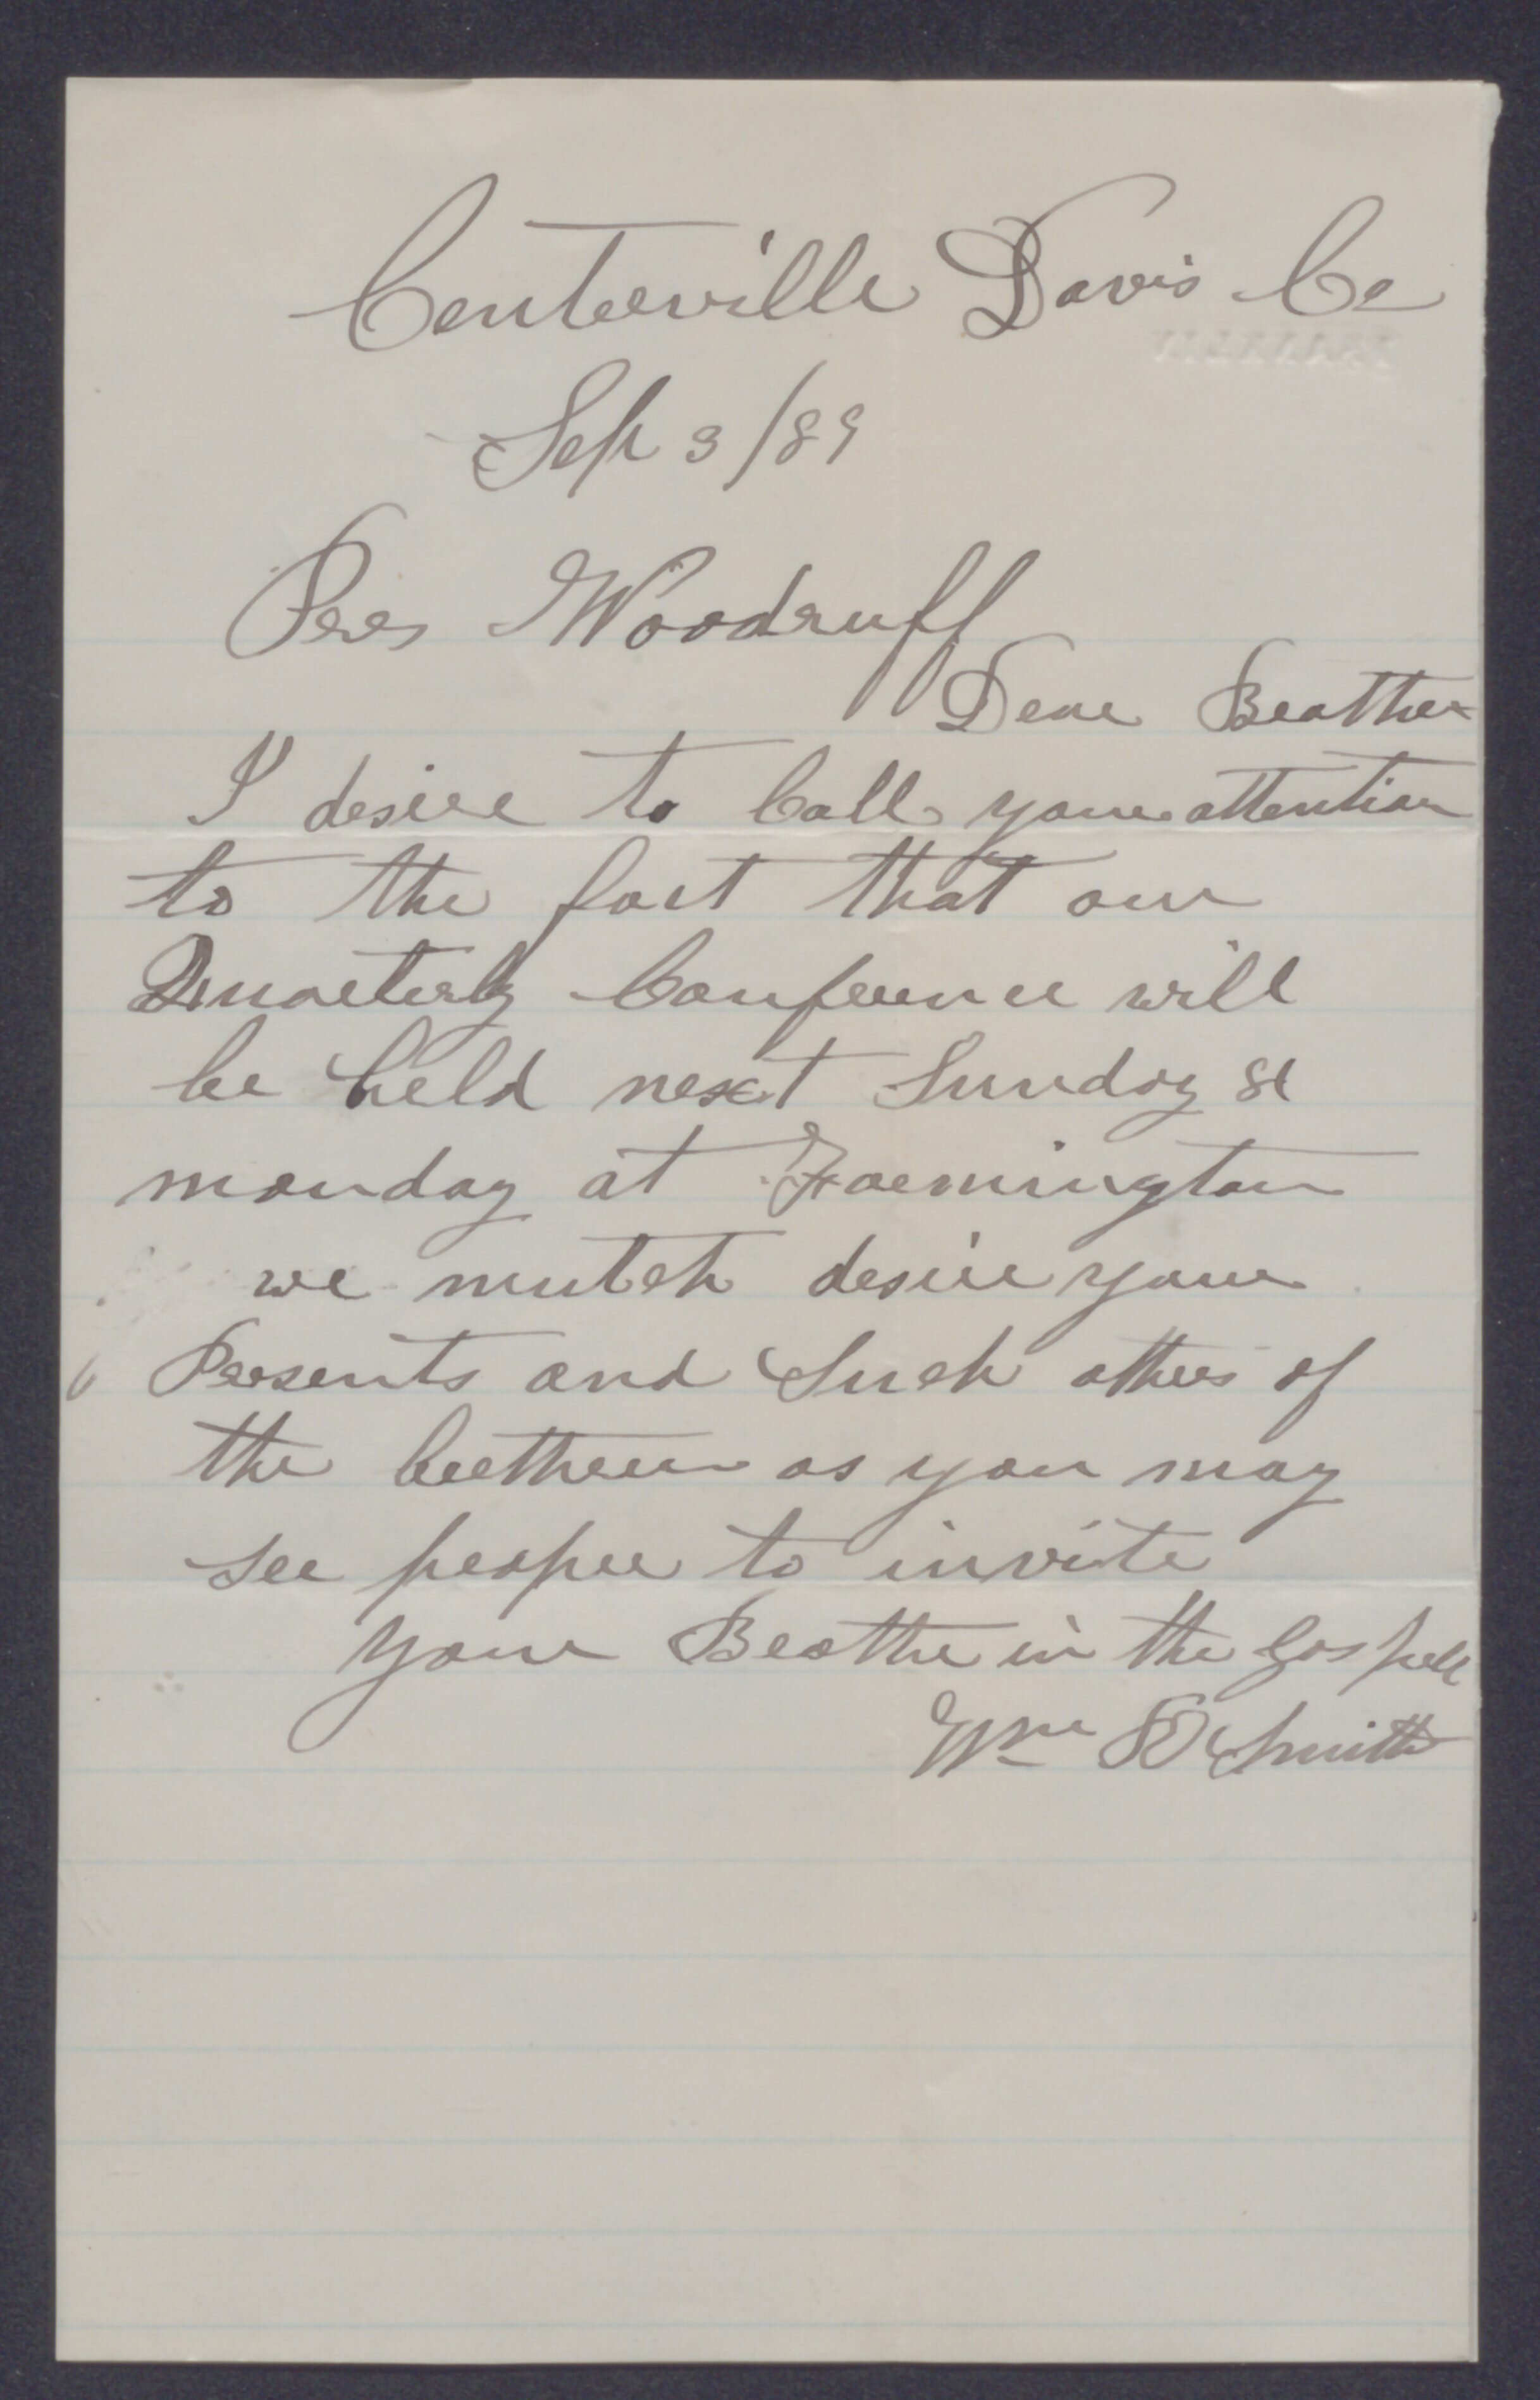 Centerville Davis Co
Sep 3/89
Pres Woodruff
Dear Brother
I desire to Call your attention
to the fact that our
Quarterly Conference will
be held next Sunday &
monday at Farmington
we mutch desire your
Presents and Such others of
the brethren as you may
see proper to invite
your Brother in the Gospell
Wm R Smith